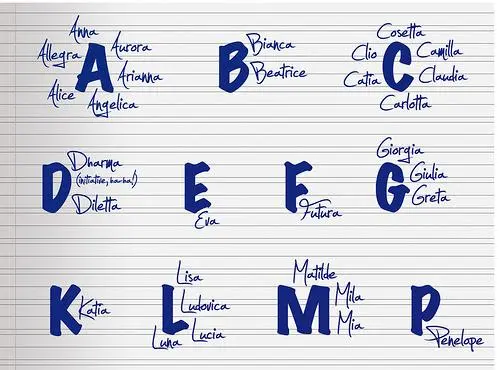 Anna
Allegra
Aurora
A
Arianna
Alice
Angelica
Bianca
B
Beatrice
Cosetta
Clio
Camilla
C
Catia
Claudia
Carlotta
Dharma
(initiative, ha-ha!)
D
Diletta
E
Eva
F
Futura
Giorgia
G
Giulia
Greta
K
Katia
Lisa
L
Ludovica
Luna
Lucia
Matilde
M
Mila
Mia
P
Penelope